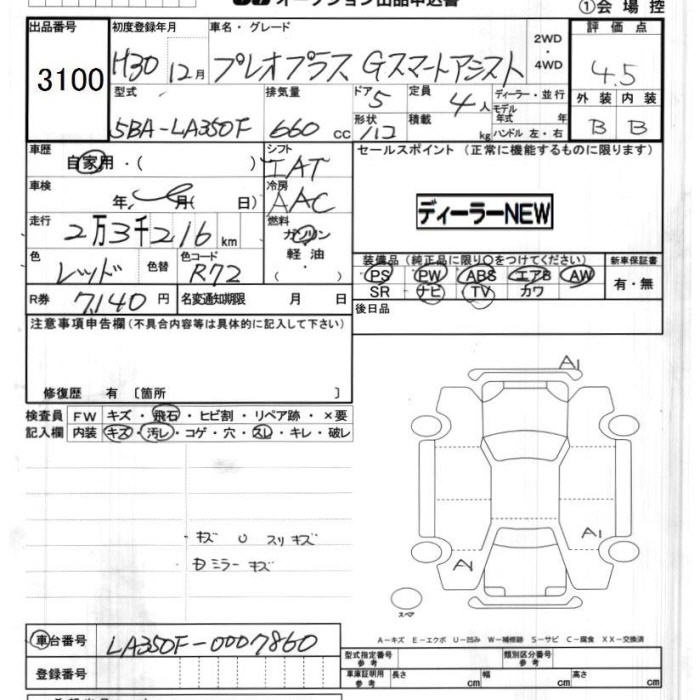 オークション出品申込書
①会場控
出品番号 3100
初度登録年月 H30 12月
車名・グレード プレオプラス Gスマートアシスト
2WD・4WD
評価点 4.5
外装 内装
B B
型式 5BA-LA350F
排気量 660 cc
ドア 5
形状
定員 4人
積載 kg
ディーラー・並行
モデル年式 年
ハンドル 左・右
車歴 自家用・( )
シフト
セールスポイント (正常に機能するものに限ります)
車検 年 月( 日)
冷房 AAC
ディーラーNEW
走行 2万3千216km
燃料 ガソリン・軽油・( )
色 レッド 色替
色コード R72
装備品(純正品に限り○をつけてください)
新車保証書
PS PW ABS エアB AW
有・無
SR ナビ TV カワ
R券 7,140円
名変通知期限 月 日
後日品
注意事項申告欄(不具合内容等は具体的に記入して下さい)
修復歴 有 〔箇所 〕
検査員 FW キズ・飛石・ヒビ割・リペア跡・×要
記入欄 内装 キズ・汚レ・コゲ・穴・スレ・キレ・破レ
A1
A1
A1
キズ U スリキズ
Dミラーキズ
スペア
A-キズ E-エクボ U-凹み W-補修跡 S-サビ C-腐食 XX-交換済
車台番号 LA350F-0007860
型式指定番号 参考
類別区分番号 参考
登録番号
車庫証明用 参考 長さ cm 幅 cm 高さ cm